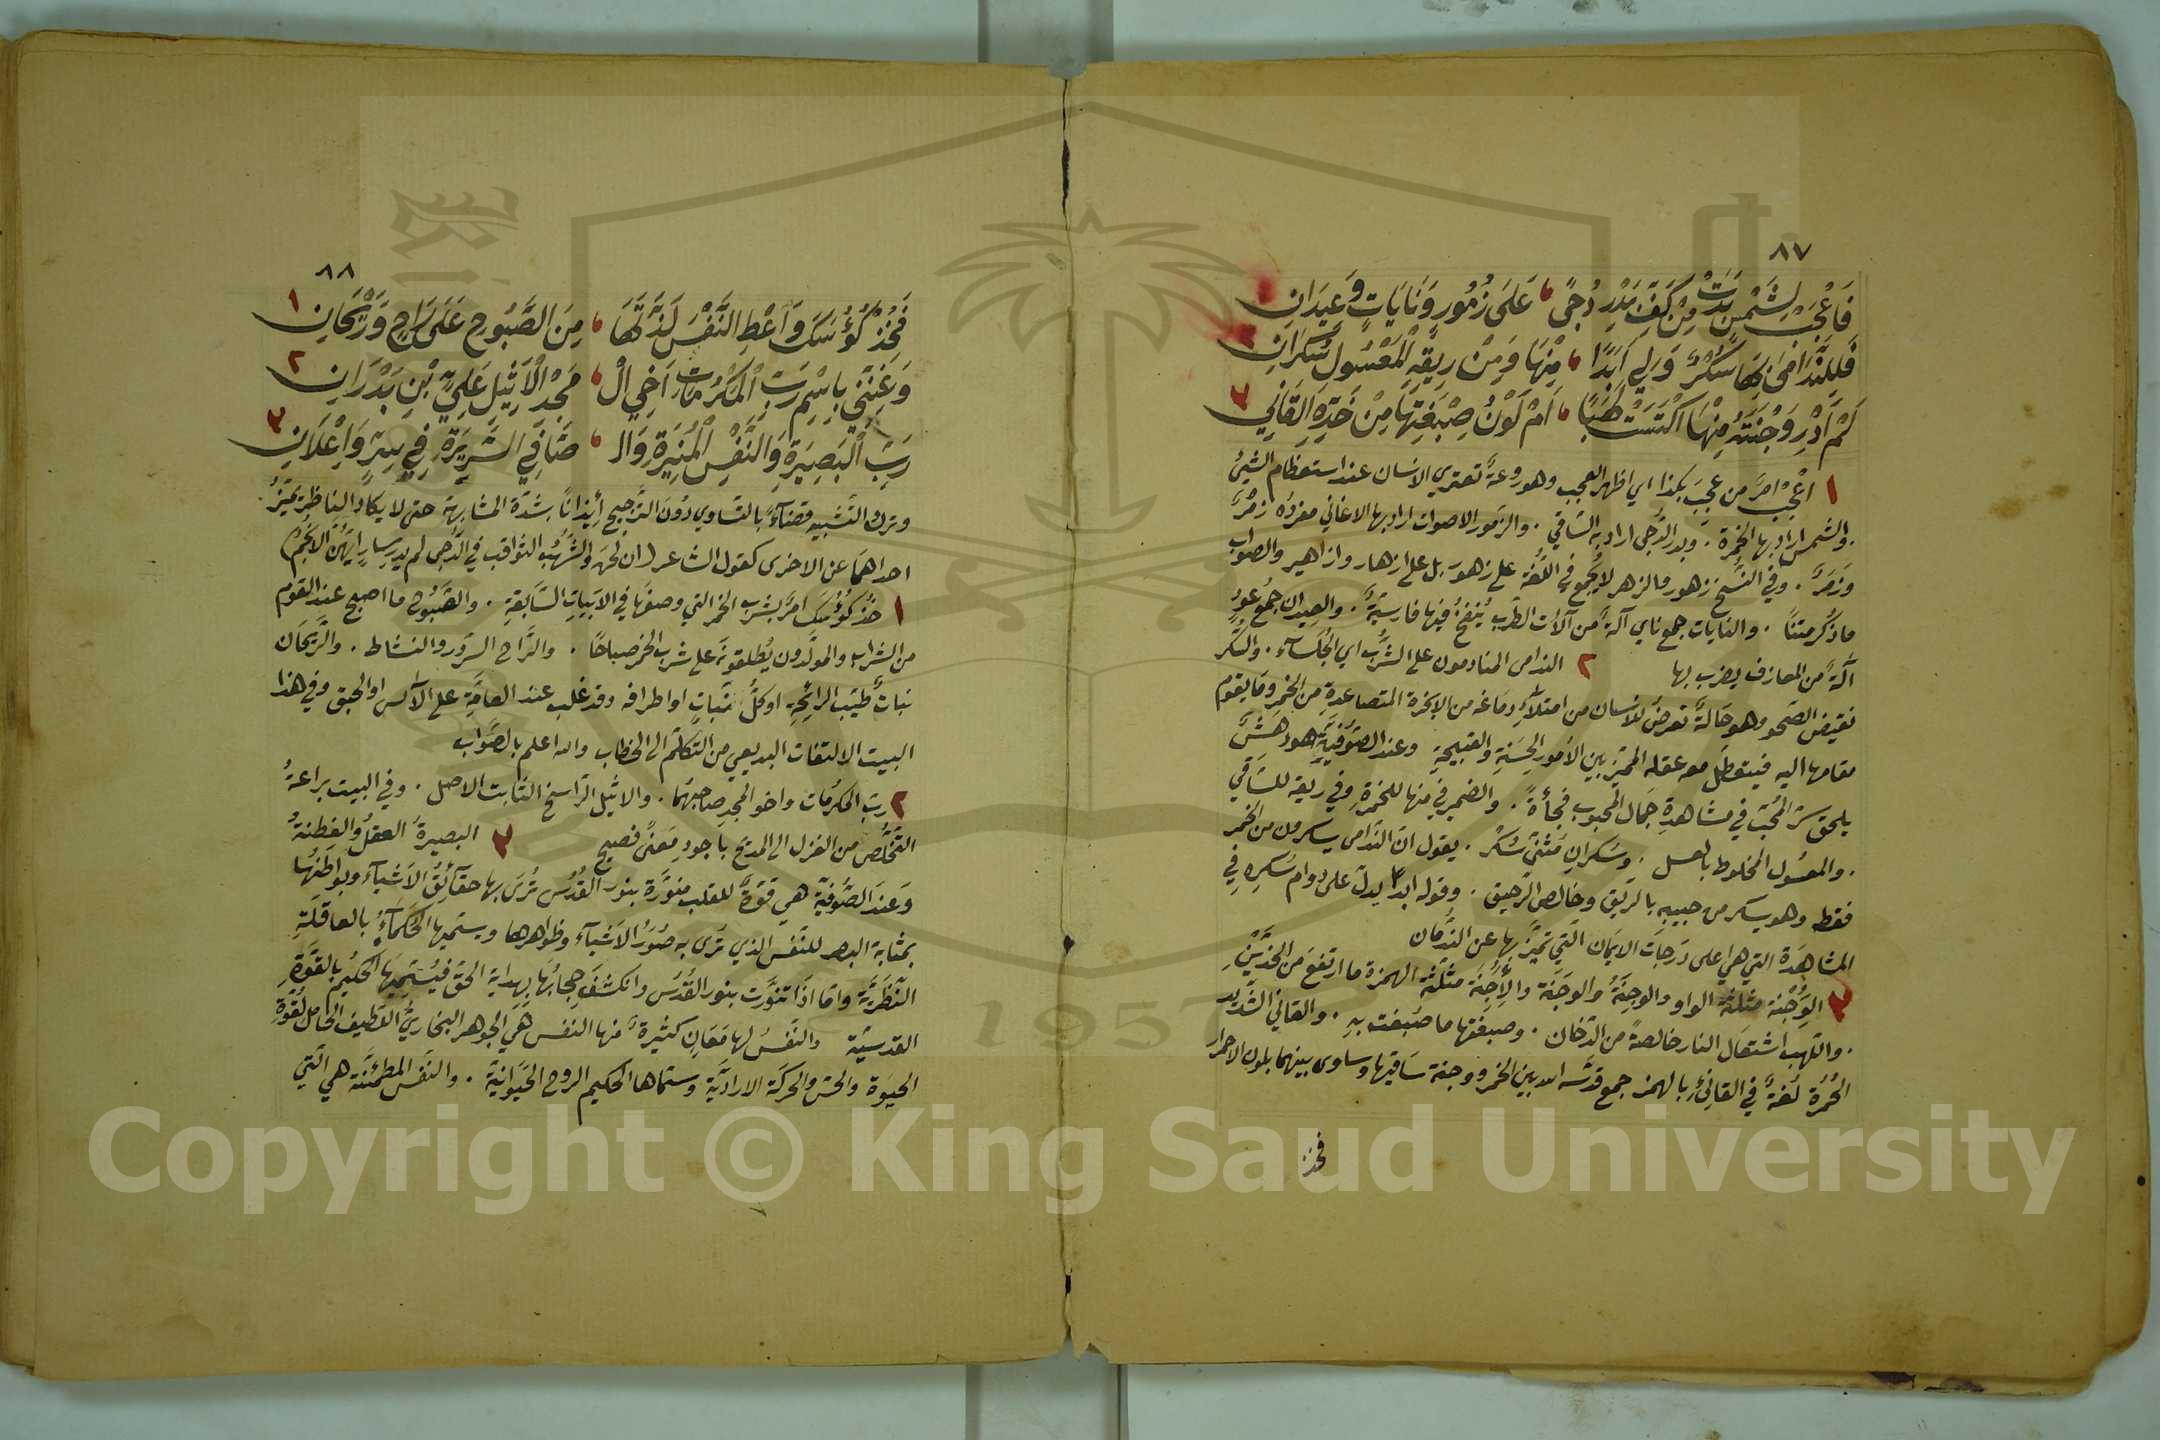 ٨٧
فَاعْجَبْ لِشَمْسٍ بَدَتْ مِنْ كَفِّ بَدْرِ دُجًى عَلَى زُمُورٍ وَنَايَاتٍ وَعِيدَانِ ١
فَلِلنَّدَامَى بِهَا سُكْرٌ وَلِي اَبَدًا مِنْهَا وَمِنْ رِيقِهِ الْمَعْسُولِ سُكْرَانِ ٢
لَمْ اَدْرِ وَجْنَتُهُ مِنْهَا اكْتَسَتْ لَهَبًا اَمْ لَوْنُ صِبْغَتِهَا مِنْ خَدِّهِ القَانِي ٣
١ اعْجَبْ امرٌ من عَجِبَ بكذا اي اظهر العجب وهو روعةٌ تعتري الانسان عند استعظام الشيءُ
. والشمس اراد بها الخمرة . وبدر الدُّجى اراد به السّاقي . والزمور الاصوات اراد بها الاغاني مفرده زمرٌ
وَزَمَرٌ . وفي النُّسَخ زهور والزهر لا يُجمع في اللُّغة على زهور بل على ازهار وازاهير والصواب
ما ذُكر متنًا . والنايات جمع ناي آلةٌ من آلات الطَّرب يُنفخُ فيها فارسيَّةٌ . والعيدان جمع عودٍ
آلةٌ من المعازف يضرب بها ٢ الندامى المنادمون على الشُّرْب اي الجُلَسآء . والسُّكر
نقيض الصَّحو وهو حَالةٌ تعرض للانسان من امتلآءِ دماغه من الابخرة المتصاعدةِ من الخمر وما يقوم
مقامها اليه فيتعطَّل معه عقله المميّز بين الأمور الحِسَنةِ والقبيحةِ وعند الصُّوفيَّةِ هو دهشٌ
يلحق سرّ المُحبّ في مشاهدةِ جمَال المحبوب فُجأةً . والضمير في منها للخمرةِ وفي ريقه للسَّاقي
. والمعسُول المخلوط بالعسل . وسُكرانِ مثنّى سُكْر . يقول انّ النَّدامى يسكرون من الخمر
فقط وهو يسكر من حبيبهِ بالريق وخالص الرَّحيق . وقوله ابدًا يدلّ على دوام سُكرِهِ في
المشاهَدة التي هي اعلى درجَات الايمان الّتي تميَّز بها عن النُّدمان
٣ الوُجْنة مثلَّثة الواو والوَجِنَةُ والوجَنَة والأُجنَة مثلَّثة الهمزة ما ارتفعَ من الخدَّيْنِ
. واللّهب اشتعَال النار خالصةً من الدّخان . وصبغتها ما صُبغت بهِ . والقاني الشَّديد
الحُمْرة لُغةٌ في القانِئِ بالهمز جمع قدَّسه الله بين الخمر ووجنة سَاقيها وساوى بينهما بلون الاحمرار
فخذ
٨٨
فَخُذْ كُؤُسَكَ وَاَعْطِ النَّفْسَ لَذَّتَهَا مِنَ الصَّبُوحِ عَلَى رَاحٍ وَرَيْحَانِ ١
وَغَنِّنِي بِاسْمِ رَبِّ الْمَكْرُمَاتِ اَخِي الْ مَجْدِ الْاَثِيلِ عَلِيِّ بْنِ بَدْرَانِ ٢
رَبِّ الْبَصِيرَةِ وَالنَّفْسِ الْمُنِيرَةِ وَالـ صَّافِي السَّرِيرَةِ فِي سِرٍّ وَاِعْلَانِ ٣
وترك التّشبيه قضآءً بالتّساوي دُونَ التَّرجيح أيذانًا بشدّة المشابهة حتى لا يكاد الناظر يميّزُ
احداهمَا عن الاخرى كقول الشاعر ان لحن والشُّهُبُ الثواقب في الدُّجى لم يدرِ سارٍ ايُّهنّ الانجُمُ
١ خُذ كُؤُسَكَ امرٌ بشرب الخمر التي وصفها في الابيات السَّابقةِ . والصَّبُوح ما اصبح عند القوم
من الشراب والمولّدون يُطلقونَه على شرب الخمر صباحًا . والرَّاح السرَور والنشاط . والرَّيحَان
نباتٌ طيّب الرائحةِ او كلُّ نَبات او اطرافه وقد غلب عند العامَّةِ على الآس او الحبق وفي هذا
البيت الالتفات البديعي من التكلّم الى الخطاب والله اعلم بالصّواب
٢ ربّ المكرُمات واخو المجدِ صاحبُهما . والاثيل الرّاسخ الثّابت الاصل . وفي البيت براعةُ
التَّخلُّص من الغزل الى المديح باجودِ مَعنًى فصيح ٣ البصيرةُ العقلُ والفِطنةُ
وَعندَ الصُّوفيَّة هي قوَّةٌ للقلب منوَّرة بنور القُدُس تُرى بها حقآئِقُ الاشيآء وبواطنُها
بمثابة البصر للنَّفس الذي ترى به صُورُ الاشيآء وظواهرها ويسمّيها الحُكمآءُ بالعاقلَةِ
النَّظريَّةِ وامّا اذا تنوَّرت بنور القُدُس وانكشفَ حجابُها بهداية الحقّ فيُسمّيها الحكيمُ بالقوَّةِ
القدسيَّة والنّفسُ لها مَعَانٍ كثيرةٌ منها النفس هي الجوهر البخاريُّ اللطيف الحامل لقوَّةِ
الحيوة والحسّ والحركة الاراديَّة وسمّاها الحكيم الروح الحَيوانيّة . والنَّفس المطمئنَّة هي الّتي
Copyright © King Saud University
1957